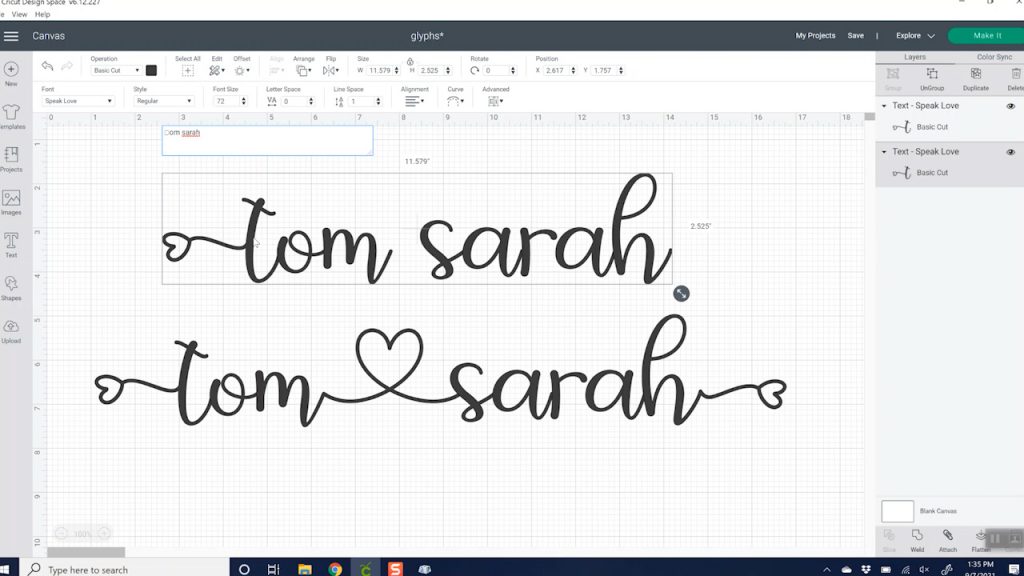 Cricut Design Space v6.12.227
View Help
Canvas
glyphs*
My Projects Save | Explore Make It
Operation Select All Edit Offset Align Arrange Flip Size Rotate Position
Basic Cut W 11.579 H 2.525 0 X 2.617 Y 1.757
Font Style Font Size Letter Space Line Space Alignment Curve Advanced
Speak Love Regular 72 VA 0 1
New
Templates
Projects
Images
Text
Shapes
Upload
0 1 2 3 4 5 6 7 8 9 10 11 12 13 14 15 16 17 18
1
2
3
4
5
6
7
8
9
10
□om sarah
11.579"
2.525"
tom sarah
tom sarah
100%
Layers Color Sync
Group UnGroup Duplicate Delete
Text - Speak Love
Basic Cut
Text - Speak Love
Basic Cut
Blank Canvas
Slice Weld Attach Flatten
Type here to search
1:35 PM
9/7/2021